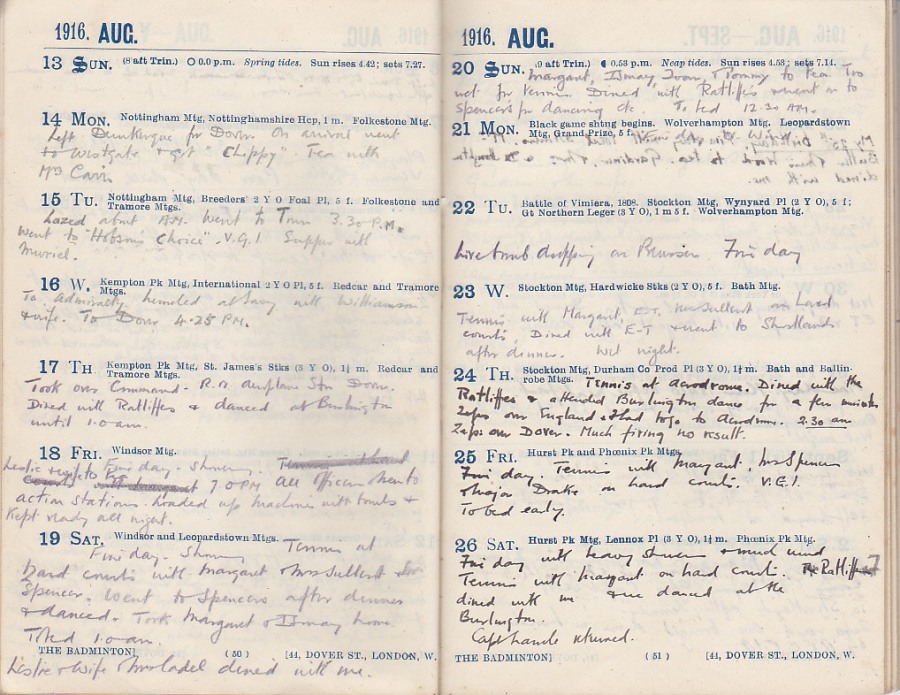 1916. AUG.
13 SUN. (8 aft Trin.) O 0.0 p.m. Spring tides. Sun rises 4.42; sets 7.27.
14 MON. Nottingham Mtg, Nottinghamshire Hcp, 1 m. Folkestone Mtg.
Left Dunkerque for Dover. On arrival went
to Westgate & got "Chippy". Tea with
Mrs
15 TU. Nottingham Mtg, Breeders' 2 Y O Foal Pl, 5 f. Folkestone and
Tramore Mtgs.
Lazed about A.M. Went to Town 3.30 P.M.
Went to "Hobson's Choice". V.G.! Supper with
Muriel.
16 W. Kempton Pk Mtg, International 2 Y O Pl, 5 f. Redcar and Tramore
Mtgs.
To Admiralty lunched at Savoy with Williamson
& wife. To Dover 4.25 PM.
17 TH Kempton Pk Mtg, St. James's Stks (3 Y O), 1½ m. Redcar and
Tramore Mtgs.
Took over Command - R.N. Aeroplane Stn Dover.
Dined with Ratliffes & danced at Burlington
until 1.0 am.
18 FRI. Windsor Mtg.
Leslie Fine day. Showery.
7.0 PM All officers to
action stations. Loaded up machines with bombs &
kept ready all night.
19 SAT. Windsor and Leopardstown Mtgs. Tennis at
Fine day. Showery
hard courts with Margaret & Mrs Sullent &
Spencer. Went to Spencers after dinner
& danced. Took Margaret & Ismay home.
To bed 1.0 am.
THE BADMINTON] ( 50 ) [44, DOVER ST., LONDON, W.
Leslie & wife & Mrs dined with me.
1916. AUG.
20 SUN. (9 aft Trin.) ☾ 0.53 p.m. Neap tides. Sun rises 4.53; sets 7.14.
Margaret, Ismay & Tommy to tea. Too
wet for tennis. Dined with Ratliffes & went on to
Spencers for dancing etc. To bed 12.30 AM.
21 MON. Black game shtng begins. Wolverhampton Mtg. Leopardstown
Mtg, Grand Prize, 5 f.
My Birthday. Fine day
to tea.
dined with me.
22 TU. Battle of Vimiera, 1808. Stockton Mtg, Wynyard Pl (2 Y O), 5 f;
Gt Northern Leger (3 Y O), 1 m 5 f. Wolverhampton Mtg.
Live bomb dropping on Fine day
23 W. Stockton Mtg, Hardwicke Stks (2 Y O), 5 f. Bath Mtg.
Tennis with Margaret, E-T, Mrs Sullent on hard
courts. Dined with E-T & went to
after dinner. Wet night.
24 TH. Stockton Mtg, Durham Co Prod Pl (3 Y O), 1¼ m. Bath and Ballin-
robe Mtgs. Tennis at Aerodrome. Dined with the
Ratliffes & attended Burlington dance for a few minutes
Zeps over England & had to go to Aerodrome. 2.30 am
Zeps over Dover. Much firing no result.
25 FRI. Hurst Pk and Phœnix Pk Mtgs.
Fine day. Tennis with Margaret, Mrs Spencer
& Major Drake on hard courts. V.G.!
To bed early.
26 SAT. Hurst Pk Mtg, Lennox Pl (3 Y O), 1¼ m. Phœnix Pk Mtg.
Fine day with heavy showers & much wind
Tennis with Margaret on hard courts. Ratliffes
dined with me & we danced at the
Burlington.
Capt returned.
THE BADMINTON] ( 51 ) [44, DOVER ST., LONDON, W.